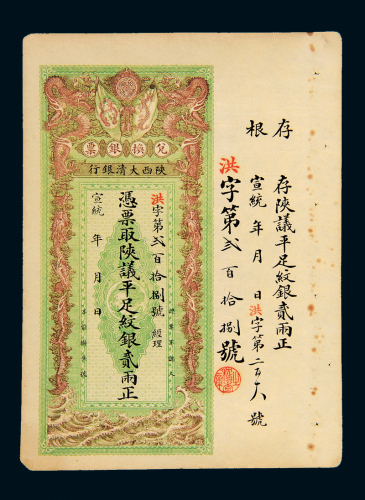 存根
存陝議平足紋銀貳兩正
宣統 年 月 日 洪字第二百十八號
洪字第貳百拾捌號
票銀換兌
行銀清大西陝
洪字第貳百拾捌號 經理
憑票取陝議平足紋銀貳兩正
宣統 年 月 日